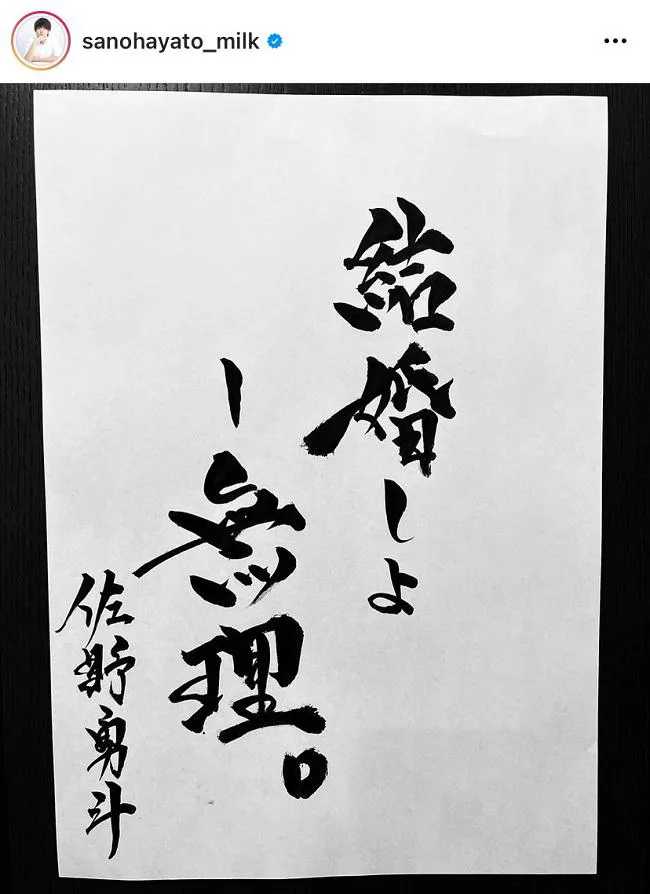 sanohayato_milk
結婚しよ
ー無理。
佐野勇斗